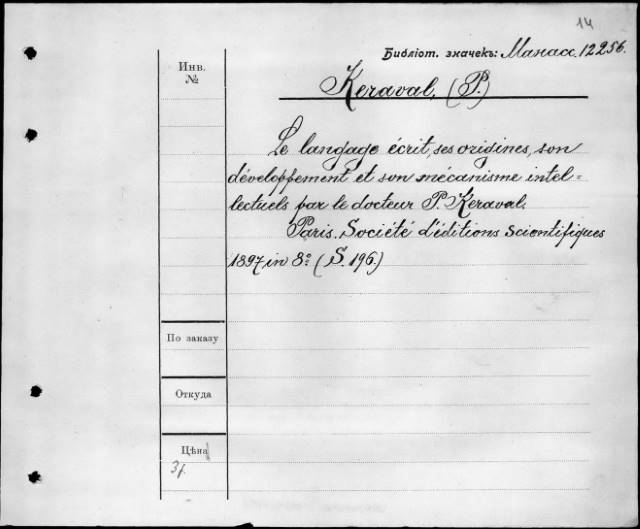 14
Библіот. значекъ: Манасс. 12256.
Инв.
№
Keraval, (P.)
Le langage écrit, ses origines, son
développement et son mécanisme intel=
lectuels par le docteur P. Keraval.
Paris. Société d'éditions scientifiques
1897 in 8º (S. 196.)
По заказу
Откуда
Цѣна
3f.